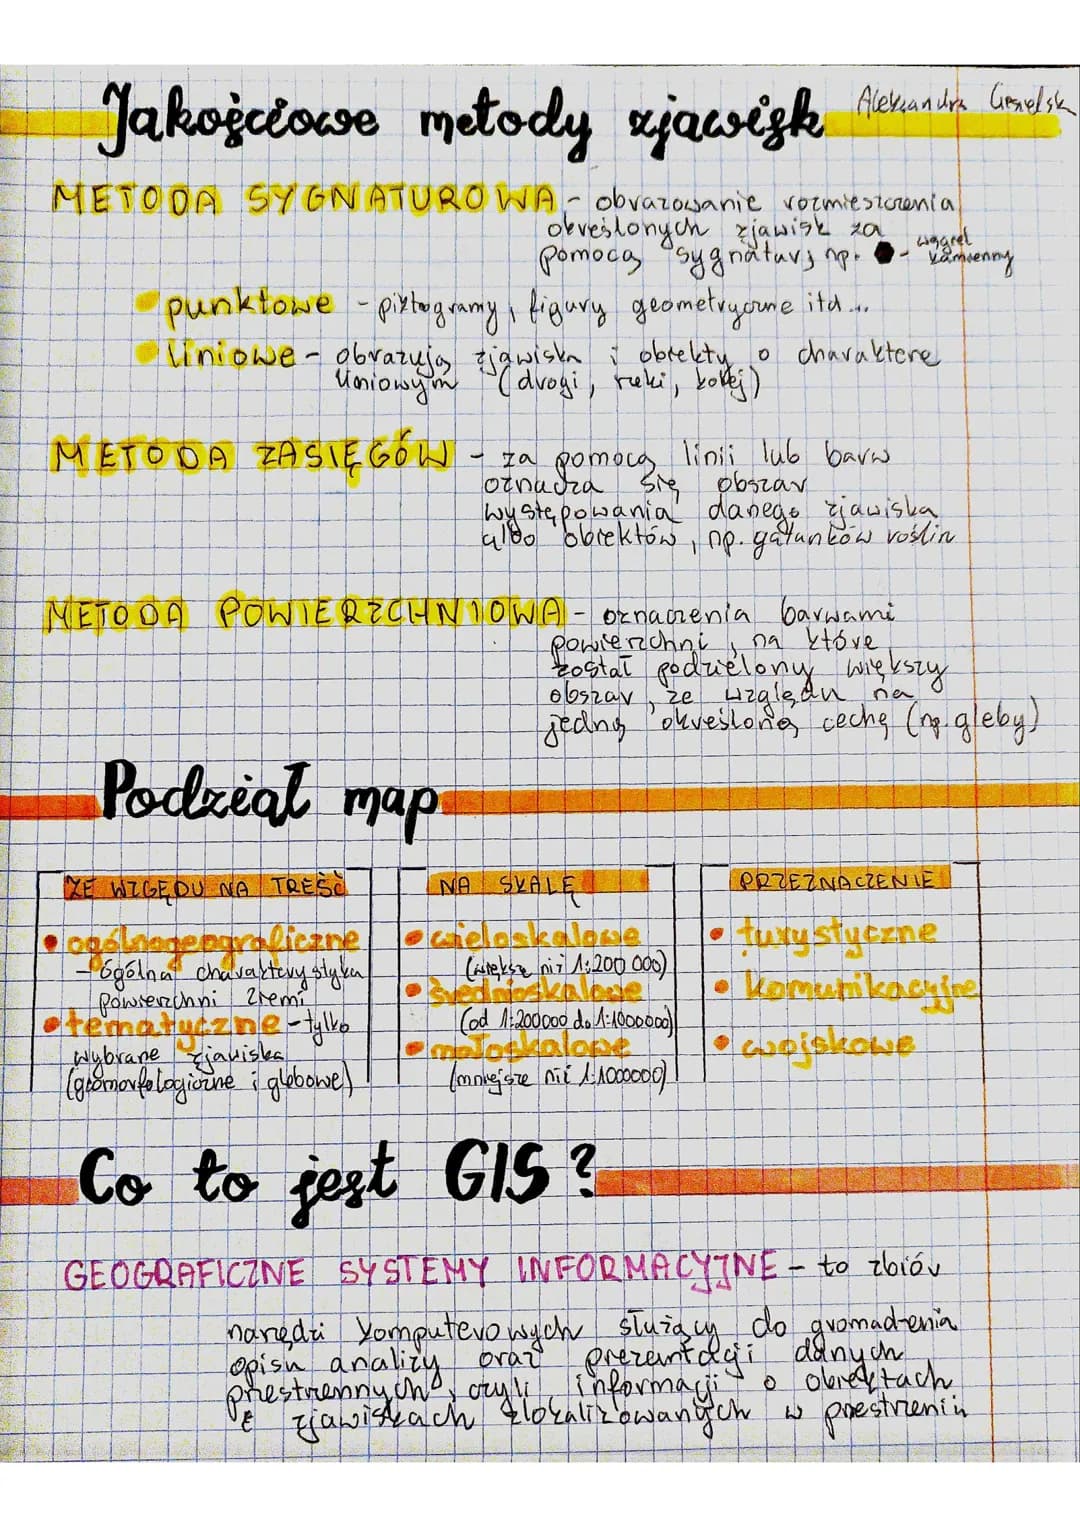 Jakościowe metody zjawisk
Aleksandra
METODA SYGNATUROWA - obrazowanie rozmieszczenia
określonych zjawisk za
pomocą sygnatury np. - węgiel
kamienny
• punktowe - piktogramy, figury geometryczne itd...
• liniowe - obrazują zjawiska i obiekty o charakterze
liniowym (drogi, rzeki, kolej)
METODA ZASIĘGÓW - za pomocą linii lub barw
oznacza się obszar
występowania danego zjawiska
albo obiektów, np. gatunków roślin
METODA POWIERZCHNIOWA - oznaczenia barwami
powierzchni, na które
został podzielony większy
obszar, ze względu na
jedną określoną cechę (np. gleby)
Podział map
ZE WZGĘDU NA TREŚĆ
• ogólnogeograficzne
- ogólna charakterystyka
powierzchni ziemi
• tematyczne - tylko
wybrane zjawiska
(geomorfologiczne i glebowe)
NA SKALĘ
• wieloskalowe
(większe niż 1:200 000)
• średnioskalowe
(od 1:200000 do 1:1000000)
• małoskalowe
(mniejsze niż 1:1000000)
PRZEZNACZENIE
• turystyczne
• komunikacyjne
• wojskowe
Co to jest GIS?
GEOGRAFICZNE SYSTEMY INFORMACYJNE - to zbiór
narzędzi komputerowych służący do gromadzenia
opisu analizy oraz prezentacji danych
przestrzennych, czyli informacji o obiektach
i zjawiskach zlokalizowanych w przestrzeni